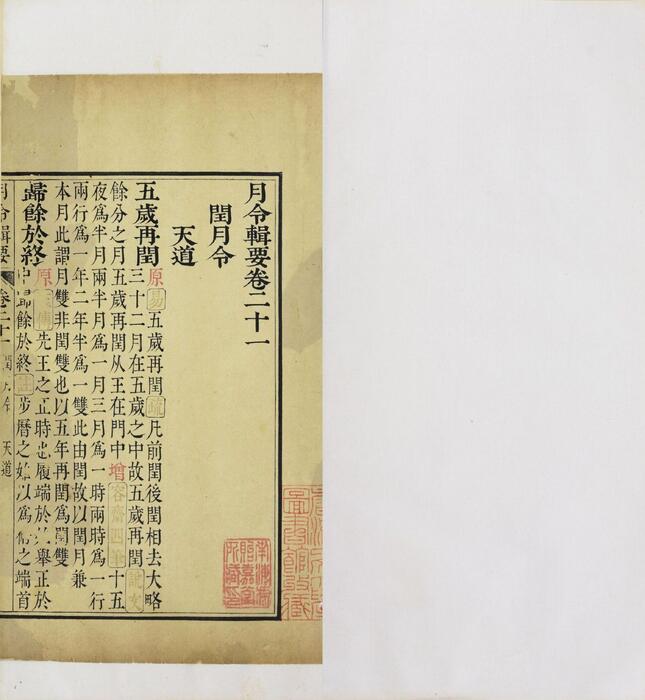 月令輯要卷二十一
閏月令
天道
五歲再閏 原易五歲再閏疏凡前閏後閏相去大略
三十二月在五歲之中故五歲再閏說文
餘分之月五歲再閏从王在門中增容齋四筆十五
夜爲半月兩半月爲一月三月爲一時兩時爲一行
兩行爲一年二年半爲一雙此由閏故以閏月兼
本月此謂月雙非閏雙也以五年再閏爲閏雙
歸餘於終 原左傳先王之正時也履端於始舉正於
中歸餘於終註步曆之始以爲術之端首
月令輯要 卷二十一 閏月令 天道